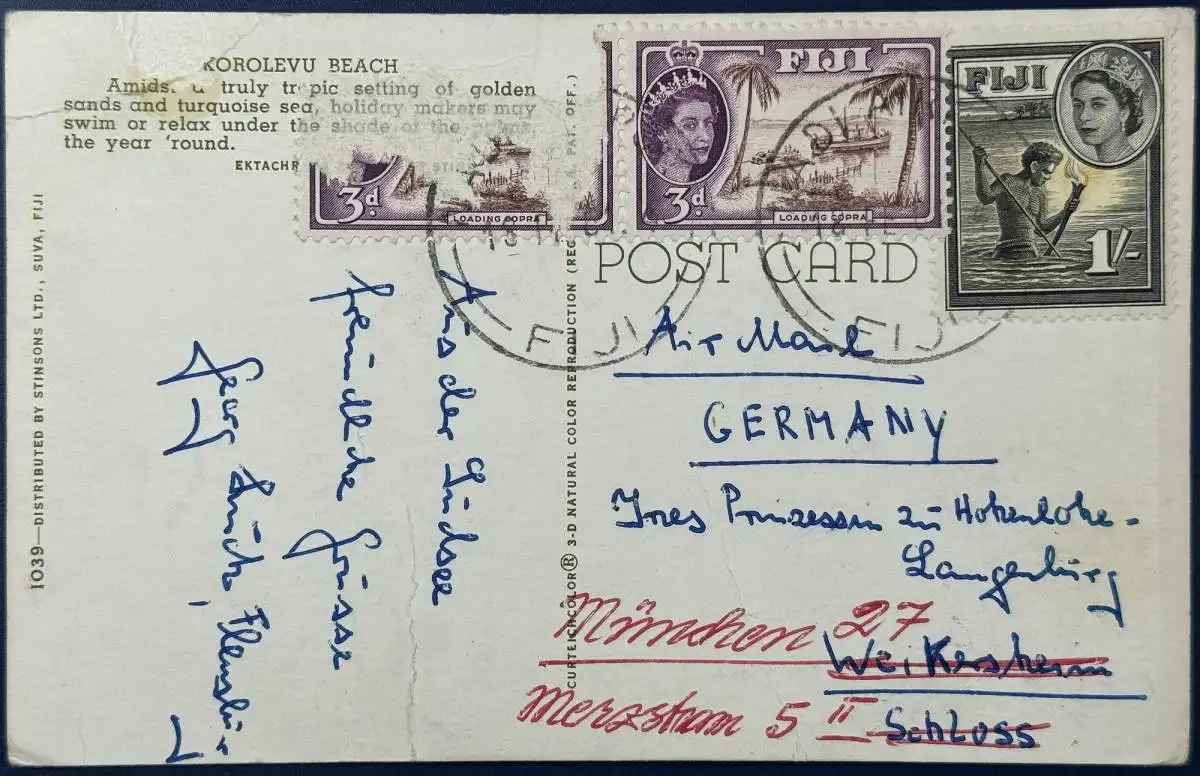 KOROLEVU BEACH
Amids. a truly tropic setting of golden
sands and turquoise sea, holiday makers may
swim or relax under the shade of the palms
the year 'round.
EKTACHR
1039—DISTRIBUTED BY STINSONS LTD., SUVA, FIJI
CURTEICHCOLOR® 3-D NATURAL COLOR REPRODUCTION (REG. PAT. OFF.)
3d.
LOADING COPRA
FIJI
3d.
LOADING COPRA
FIJI
1/-
FIJI
FIJI
POST CARD
Aus der Südsee
freundliche Grüsse
Georg
Air Mail
GERMANY
Ines Prinzessin zu Hohenlohe-
Langenburg
München 27
Weikersheim
Merzstrasse 5 II
Schloss